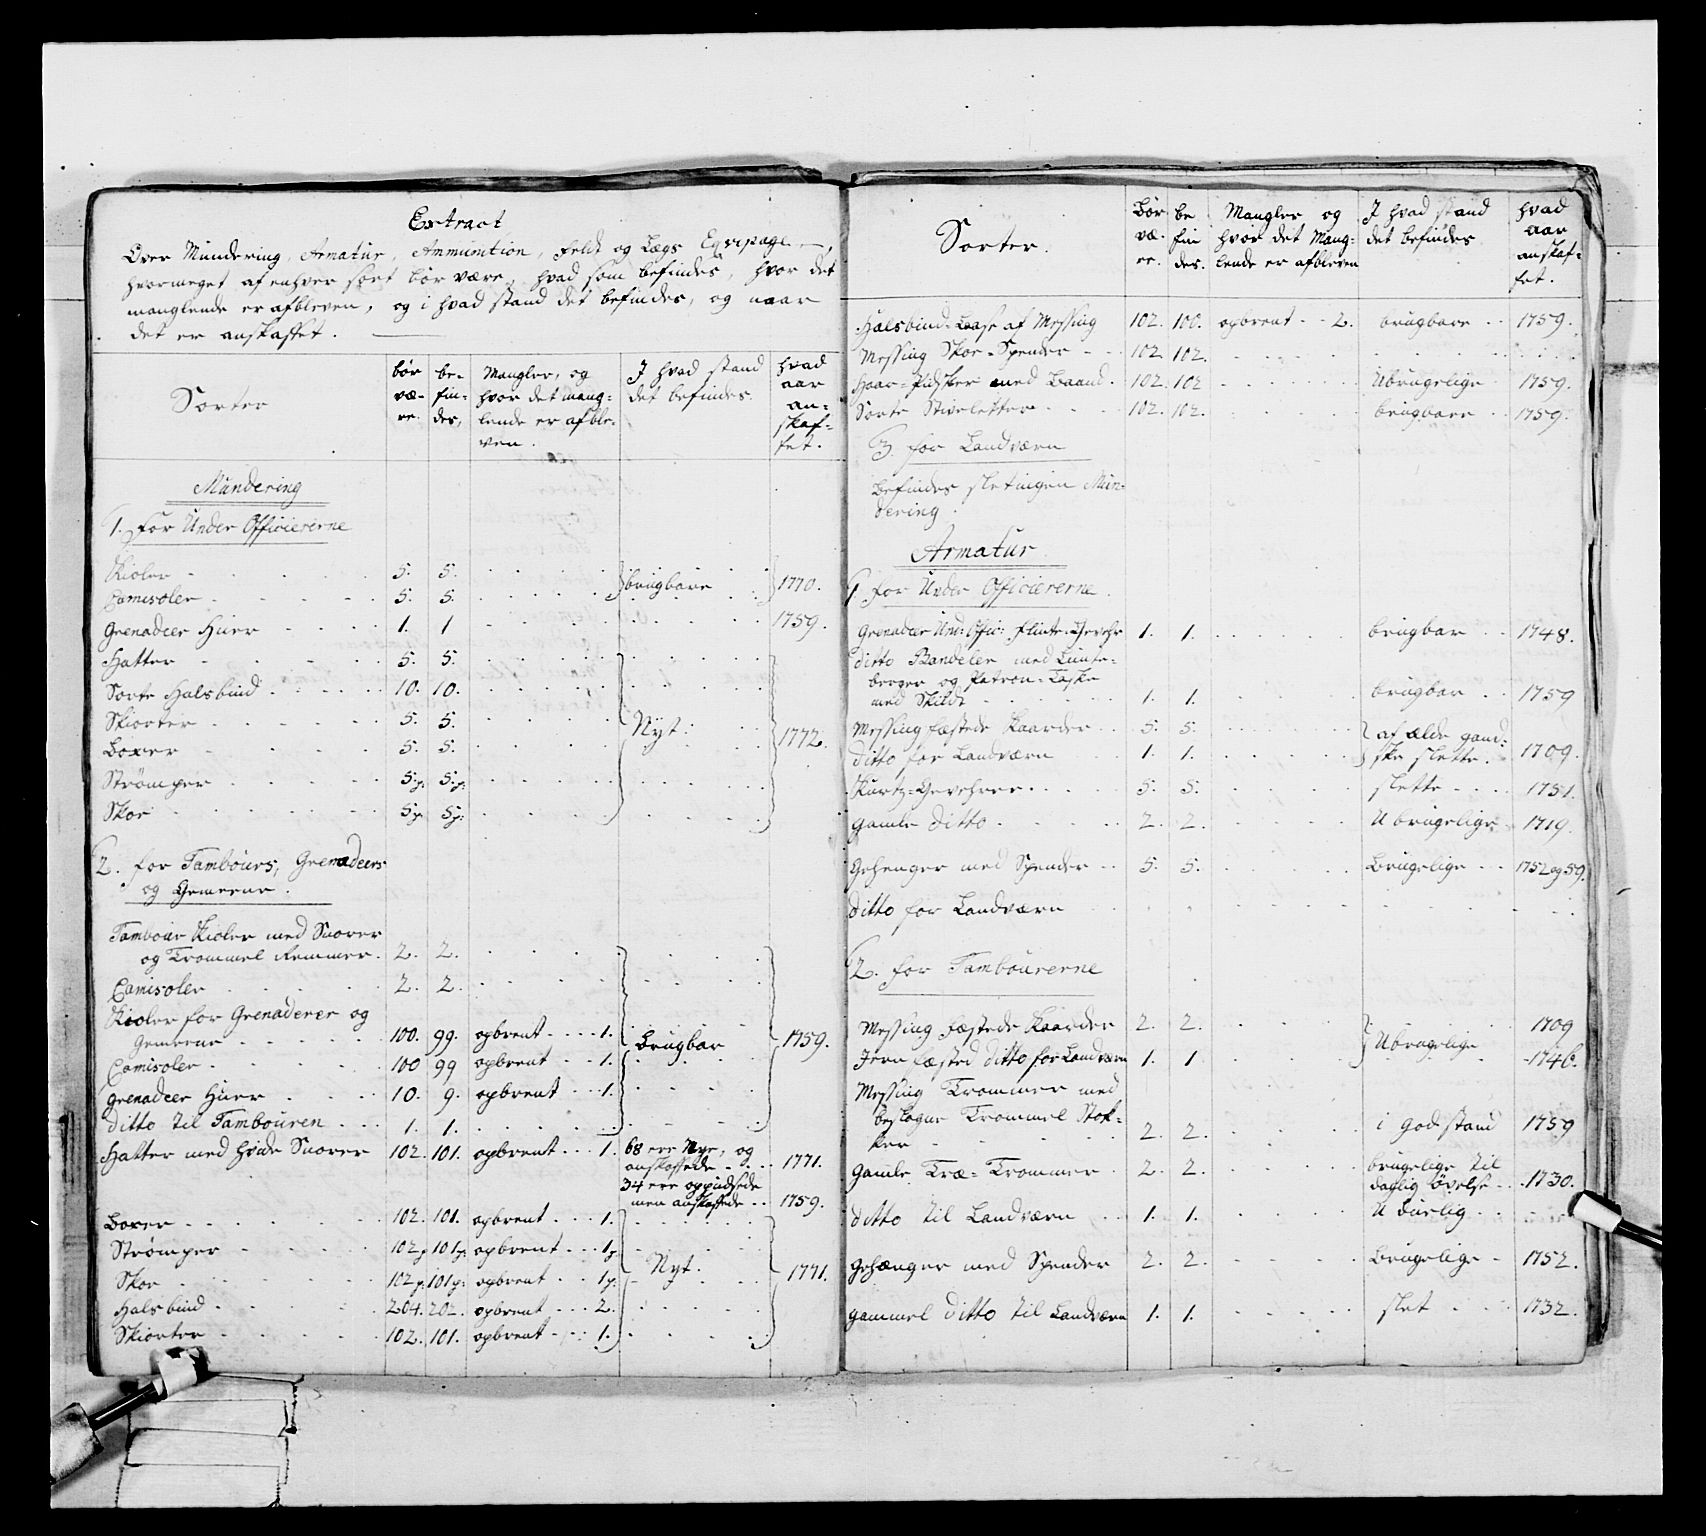 Extract
Over Mundering, Armatur, Ammunition, Feldt og Lægs Eqvipage,
hvormeget af enhver sort bør være, hvad som befindes, hvor det
manglende er afbleven, og i hvad stand det befindes, og naar
det er anskaffet.
Sorter | bør væ- re. | be- fin- des, | Mangler, og hvor det mang- lende er afble- ven. | I hvad stand det befindes | hvad aar an- skaf- fet.
Mundering
1. for Under Officiererne
Kioler 5. 5. brugbare 1770.
Camisoler 5. 5.
Grenadeer Huer 1. 1 1759.
Hatter 5. 5.
Sorte Halsbind 10. 10.
Skiorter 5. 5. Nyt.
Boxer 5. 5. 1772.
Strømper 5.p. 5.p.
Skoe 5p. 5p.
2. for Tambours, Grenadeers
og Gemeene.
Tambour Kioler med Snorer
og Trommel Remmer. 2. 2.
Camisoler 2. 2.
Kioler for Grenaderer og
Gemeene 100. 99. opbrent 1. Brugbar 1759.
Camisoler 100 99 opbrent 1.
Grenadeer Huer 10. 9. opbrent 1.
ditto til Tambouren 1. 1.
Hatter med hvide Snorer 102. 101. opbrent 1. 68 ere Nye, og
anskaffede 1771.
34 ere oppudsede
men anskaffede 1759.
Boxer 102. 101. opbrent 1.
Strømper 102p 101p. opbrent 1p.
Skoe 102p. 101p. opbrent 1p. Nyt. 1771.
Halsbind 204. 202. opbrent 2.
Skiorter 102. 101. opbrent 1.
Sorter. | Bør væ- re. | be fin des. | Mangler og hvor det Mang- lende er afbleven | I hvad stand det befindes | hvad aar anskaf- fet.
Halsbind-Laase af Messing 102. 100. opbrent 2. brugbare 1759.
Messing Skoe-Spender 102. 102.
Haar-Pidsker med Baand. 102. 102 Ubrugelige 1759.
Sorte Stivletter 102. 102. brugbare 1759.
3. for Landværn
Befindes sletingen Mun-
dering.
Armatur
1. for Under Officiererne.
Grenadeer Und: Offic: Flinte-Gevehr 1. 1. brugbar 1748.
ditto Bandeleer med Lunte-
berger og Patron-Taske
med Skildt 1. 1. brugbar 1759
Messing fæstede Kaarder 5. 5. af ælde gand-
ditto for Landværn 1. 1. ske slette. 1709.
Kurtz-Gevehrer 5. 5. slette 1751.
gamle ditto 2. 2. Ubrugelige 1719.
Gehenger med Spender 5. 5. Brugelige 1752 og 59.
ditto for Landværn
2. for Tambourerne
Messing fæstede Kaarder 2. 2. 1709
Jern fæsted ditto for Landværn 1. 1 Ubrugelige 1746.
Messing Trommer med
beslagne Trommel Stok-
ker 2. 2. i god stand 1759
gamle Træ-Trommer 2. 2. brugelige til
daglig øvelse 1730.
ditto til Landværn 1. 1. Uduelig
Gehænger med Spender 2. 2. Brugelige 1752.
gammel ditto til Landværn 1. 1. slet 1732.